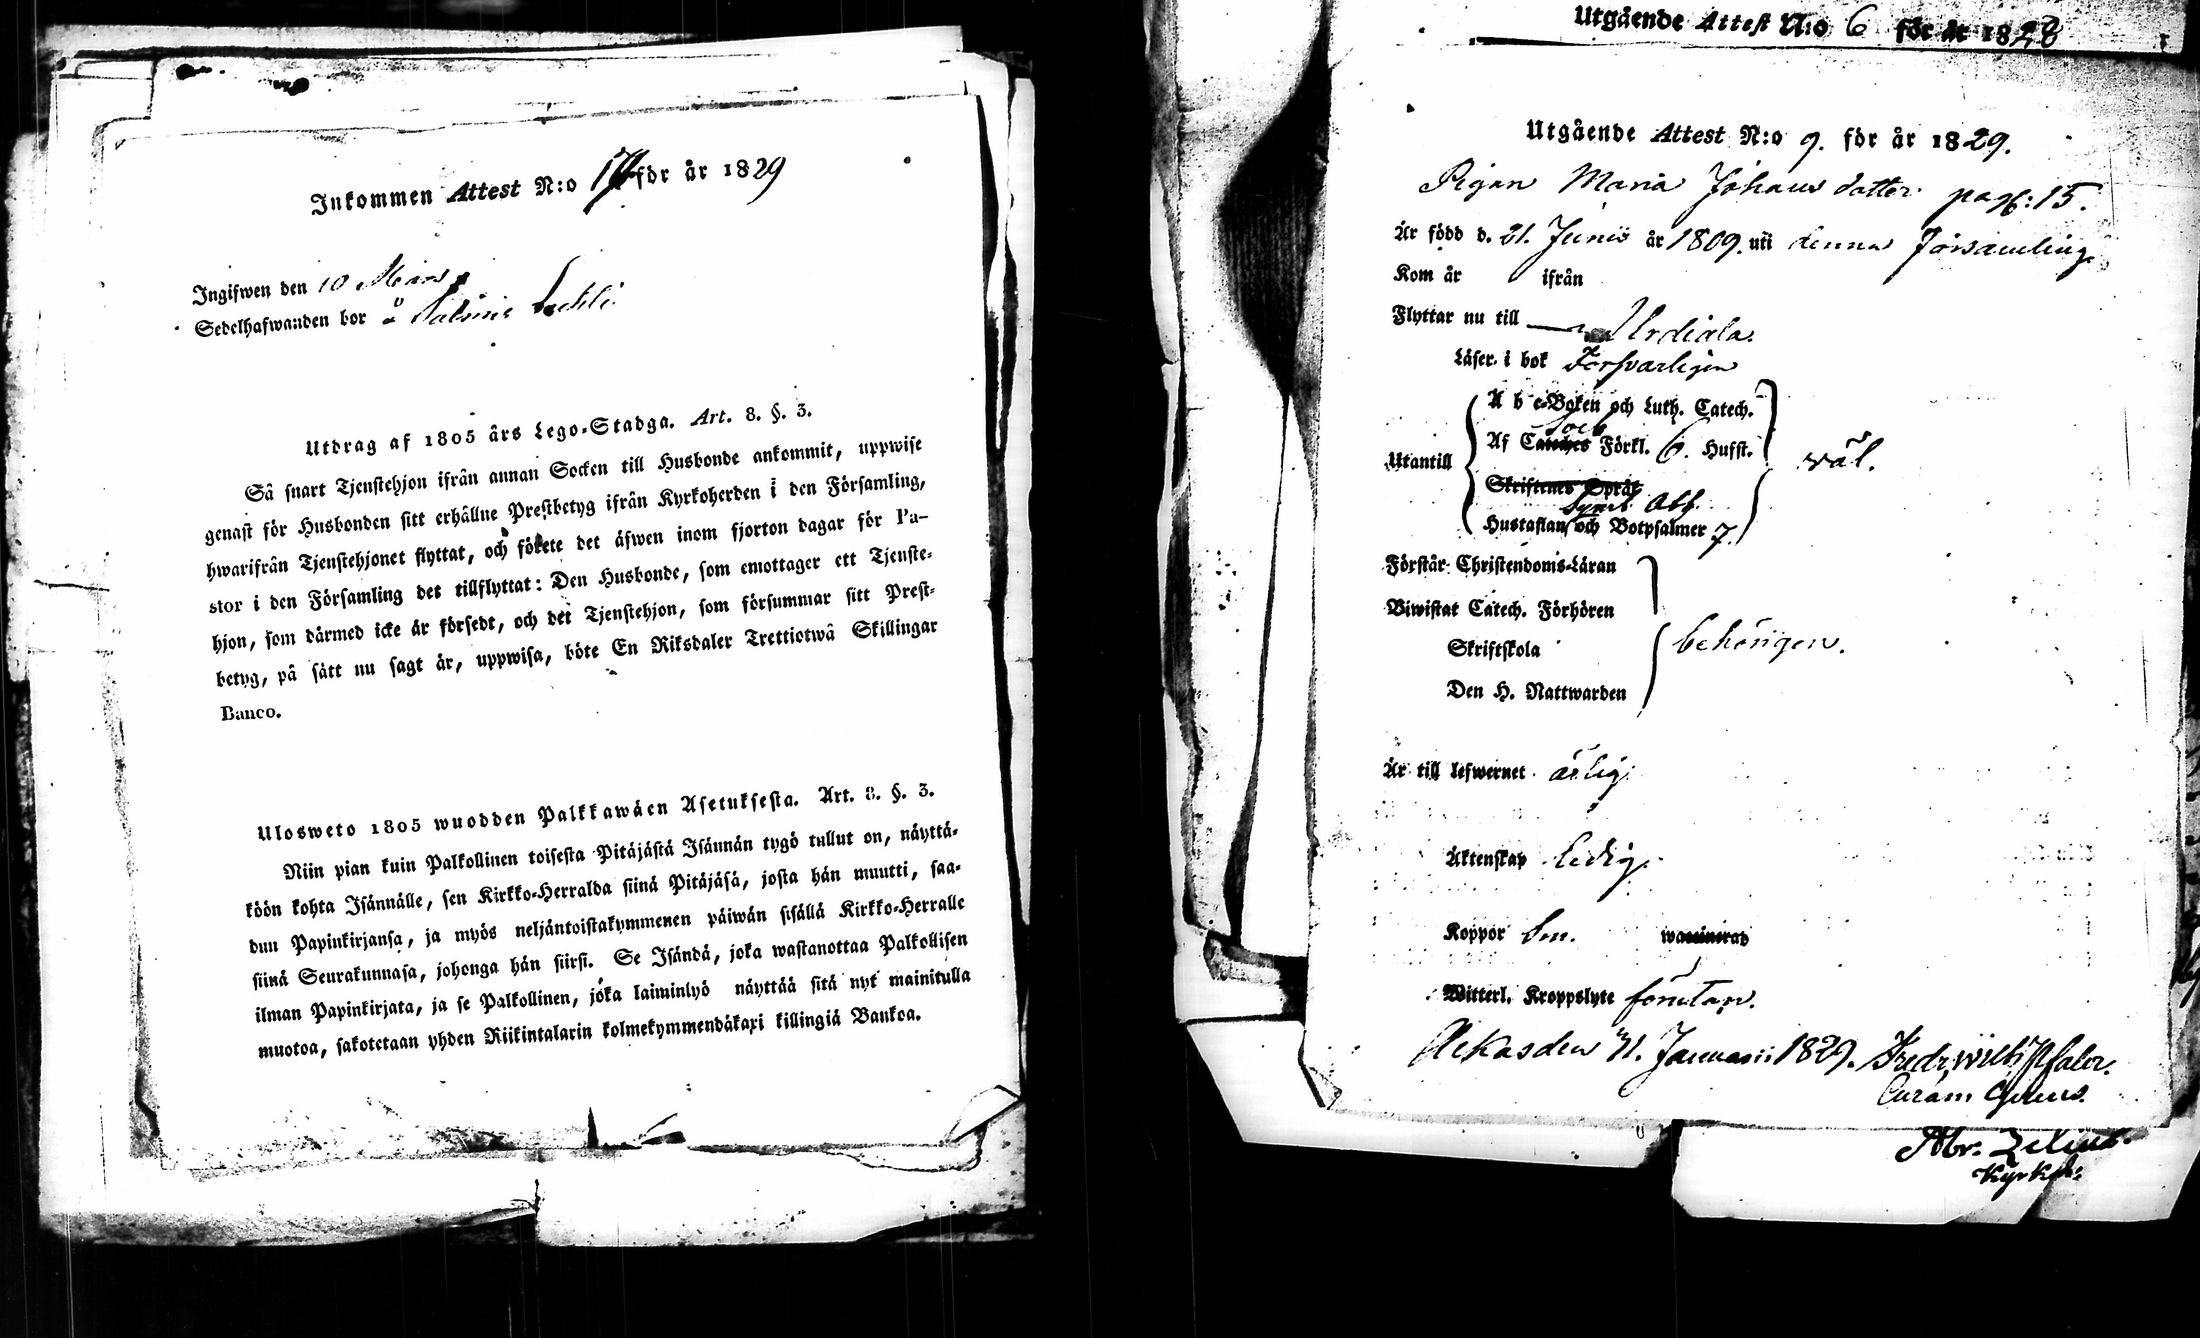 Inkommen Attest N:o 17 för år 1829
Ingifwen den 10 Mars
Sedelhafwanden bor å
Utdrag af 1805 års Lego-Stadga. Art. 8. §. 3.
Så snart Tjenstehjon ifrån annan Socken till Husbonde ankommit, uppwise
genast för Husbonden sitt erhållne Prestbetyg ifrån Kyrkoherden i den Församling,
hwarifrån Tjenstehjonet flyttat, och förete det äfwen inom fjorton dagar för Pa-
stor i den Församling det tillflyttat: Den Husbonde, som emottager ett Tjenste-
hjon, som därmed icke är försedt, och det Tjenstehjon, som försummar sitt Prest-
betyg, på sätt nu sagt är, uppwisa, böte En Riksdaler Trettiotwå Skillingar
Banco.
Ulosweto 1805 wuodden Palkkawäen Asetuksesta. Art. 8. §. 3.
Niin pian kuin Palkollinen toisesta Pitäjästä Isännän tygö tullut on, näyttä-
köön kohta Isännälle, sen Kirkko-Herralda siinä Pitäjäsä, josta hän muutti, saa-
dun Papinkirjansa, ja myös neljäntoistakymmenen päiwän sisällä Kirkko-Herralle
siinä Seurakunnasa, johonga hän siirsi. Se Isändä, joka wastanottaa Palkollisen
ilman Papinkirjata, ja se Palkollinen, joka laiminlyö näyttää sitä nyt mainitulla
muotoa, sakotetaan yhden Riikintalarin kolmekymmendäkaxi killingiä Bankoa.
Utgående Attest N:o 6 för år 1828
Utgående Attest N:o 9. för år 1829.
Pigan Maria Johans dotter pag: 15.
Är född d. 21. Junii år 1809. uti denna Församling.
Kom år ifrån
Flyttar nu till Urdiala.
Läser i bok Försvarligen
A b c-Boken och Luth. Catech.
Af Catech Förkl. 6. Hufst.
Utantill väl.
Skriftenes Språk
Symb. Ath.
Hustaflan och Botpsalmer 7.
Förstår Christendoms-Läran
Biwistat Catech. Förhören
Skriftskola behörigen.
Den H. Nattwarden
Är till lefwernet ärlig.
Äktenskap ledig.
Koppor waccinerad
Witterl. Kroppslyte förutan.
Akkas den 31. Januarii 1829. Fredr. Wilh. Pfaler.
Abr. Zelius.
Kyrkoh: